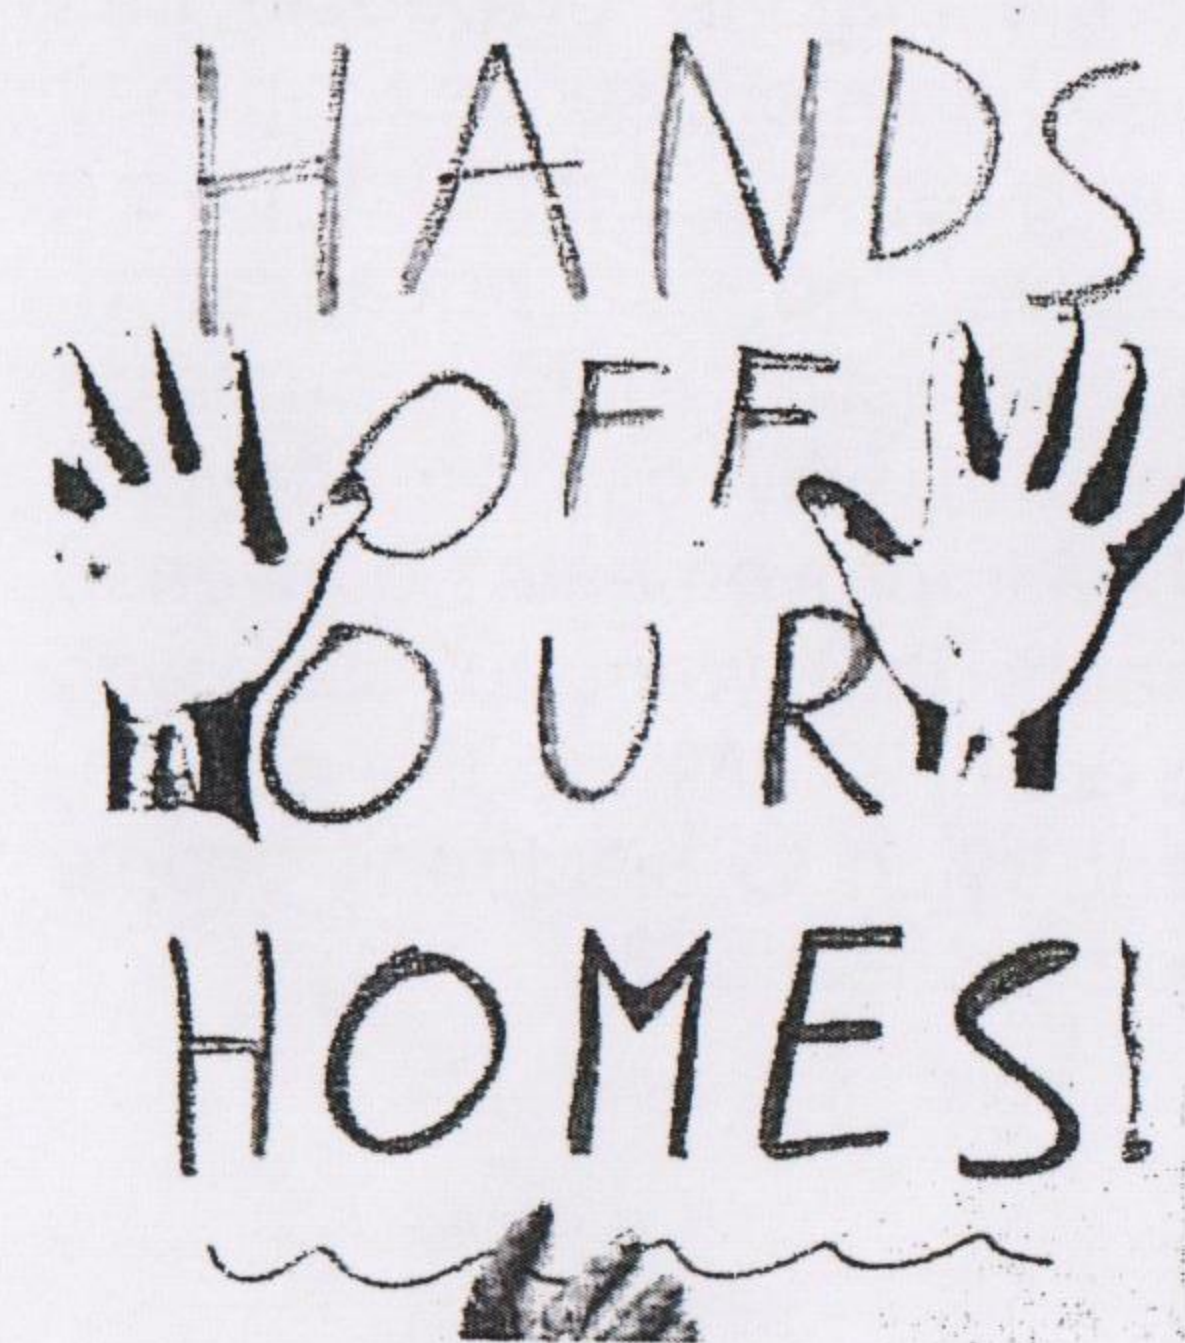 HANDS
OFF
OUR
HOMES!